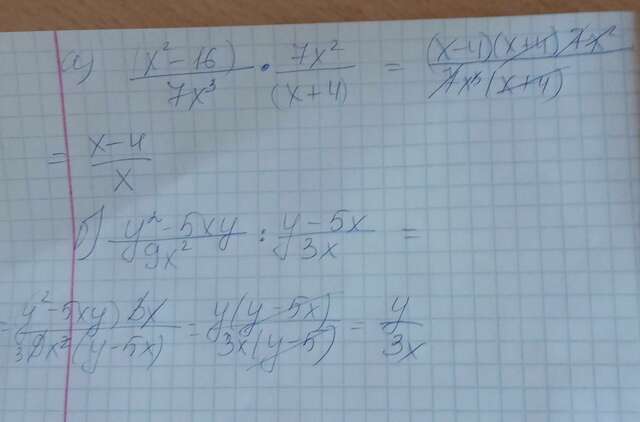 а) (x²-16)/7x³ · 7x²/(x+4) = (x-4)(x+4)7x²/7x³(x+4)
= x-4/x
б) y²-5xy/9x² : y-5x/3x =
= (y²-5xy)3x/9x²(y-5x) 3 = y(y-5x)/3x(y-5) = y/3x